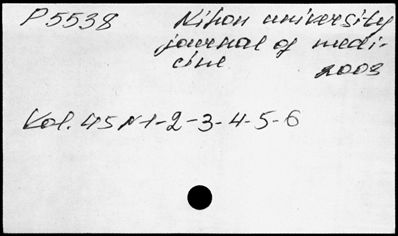 P5538 Nihon university
journal of medi-
cine 2003
Vol. 45 N 1-2-3-4-5-6